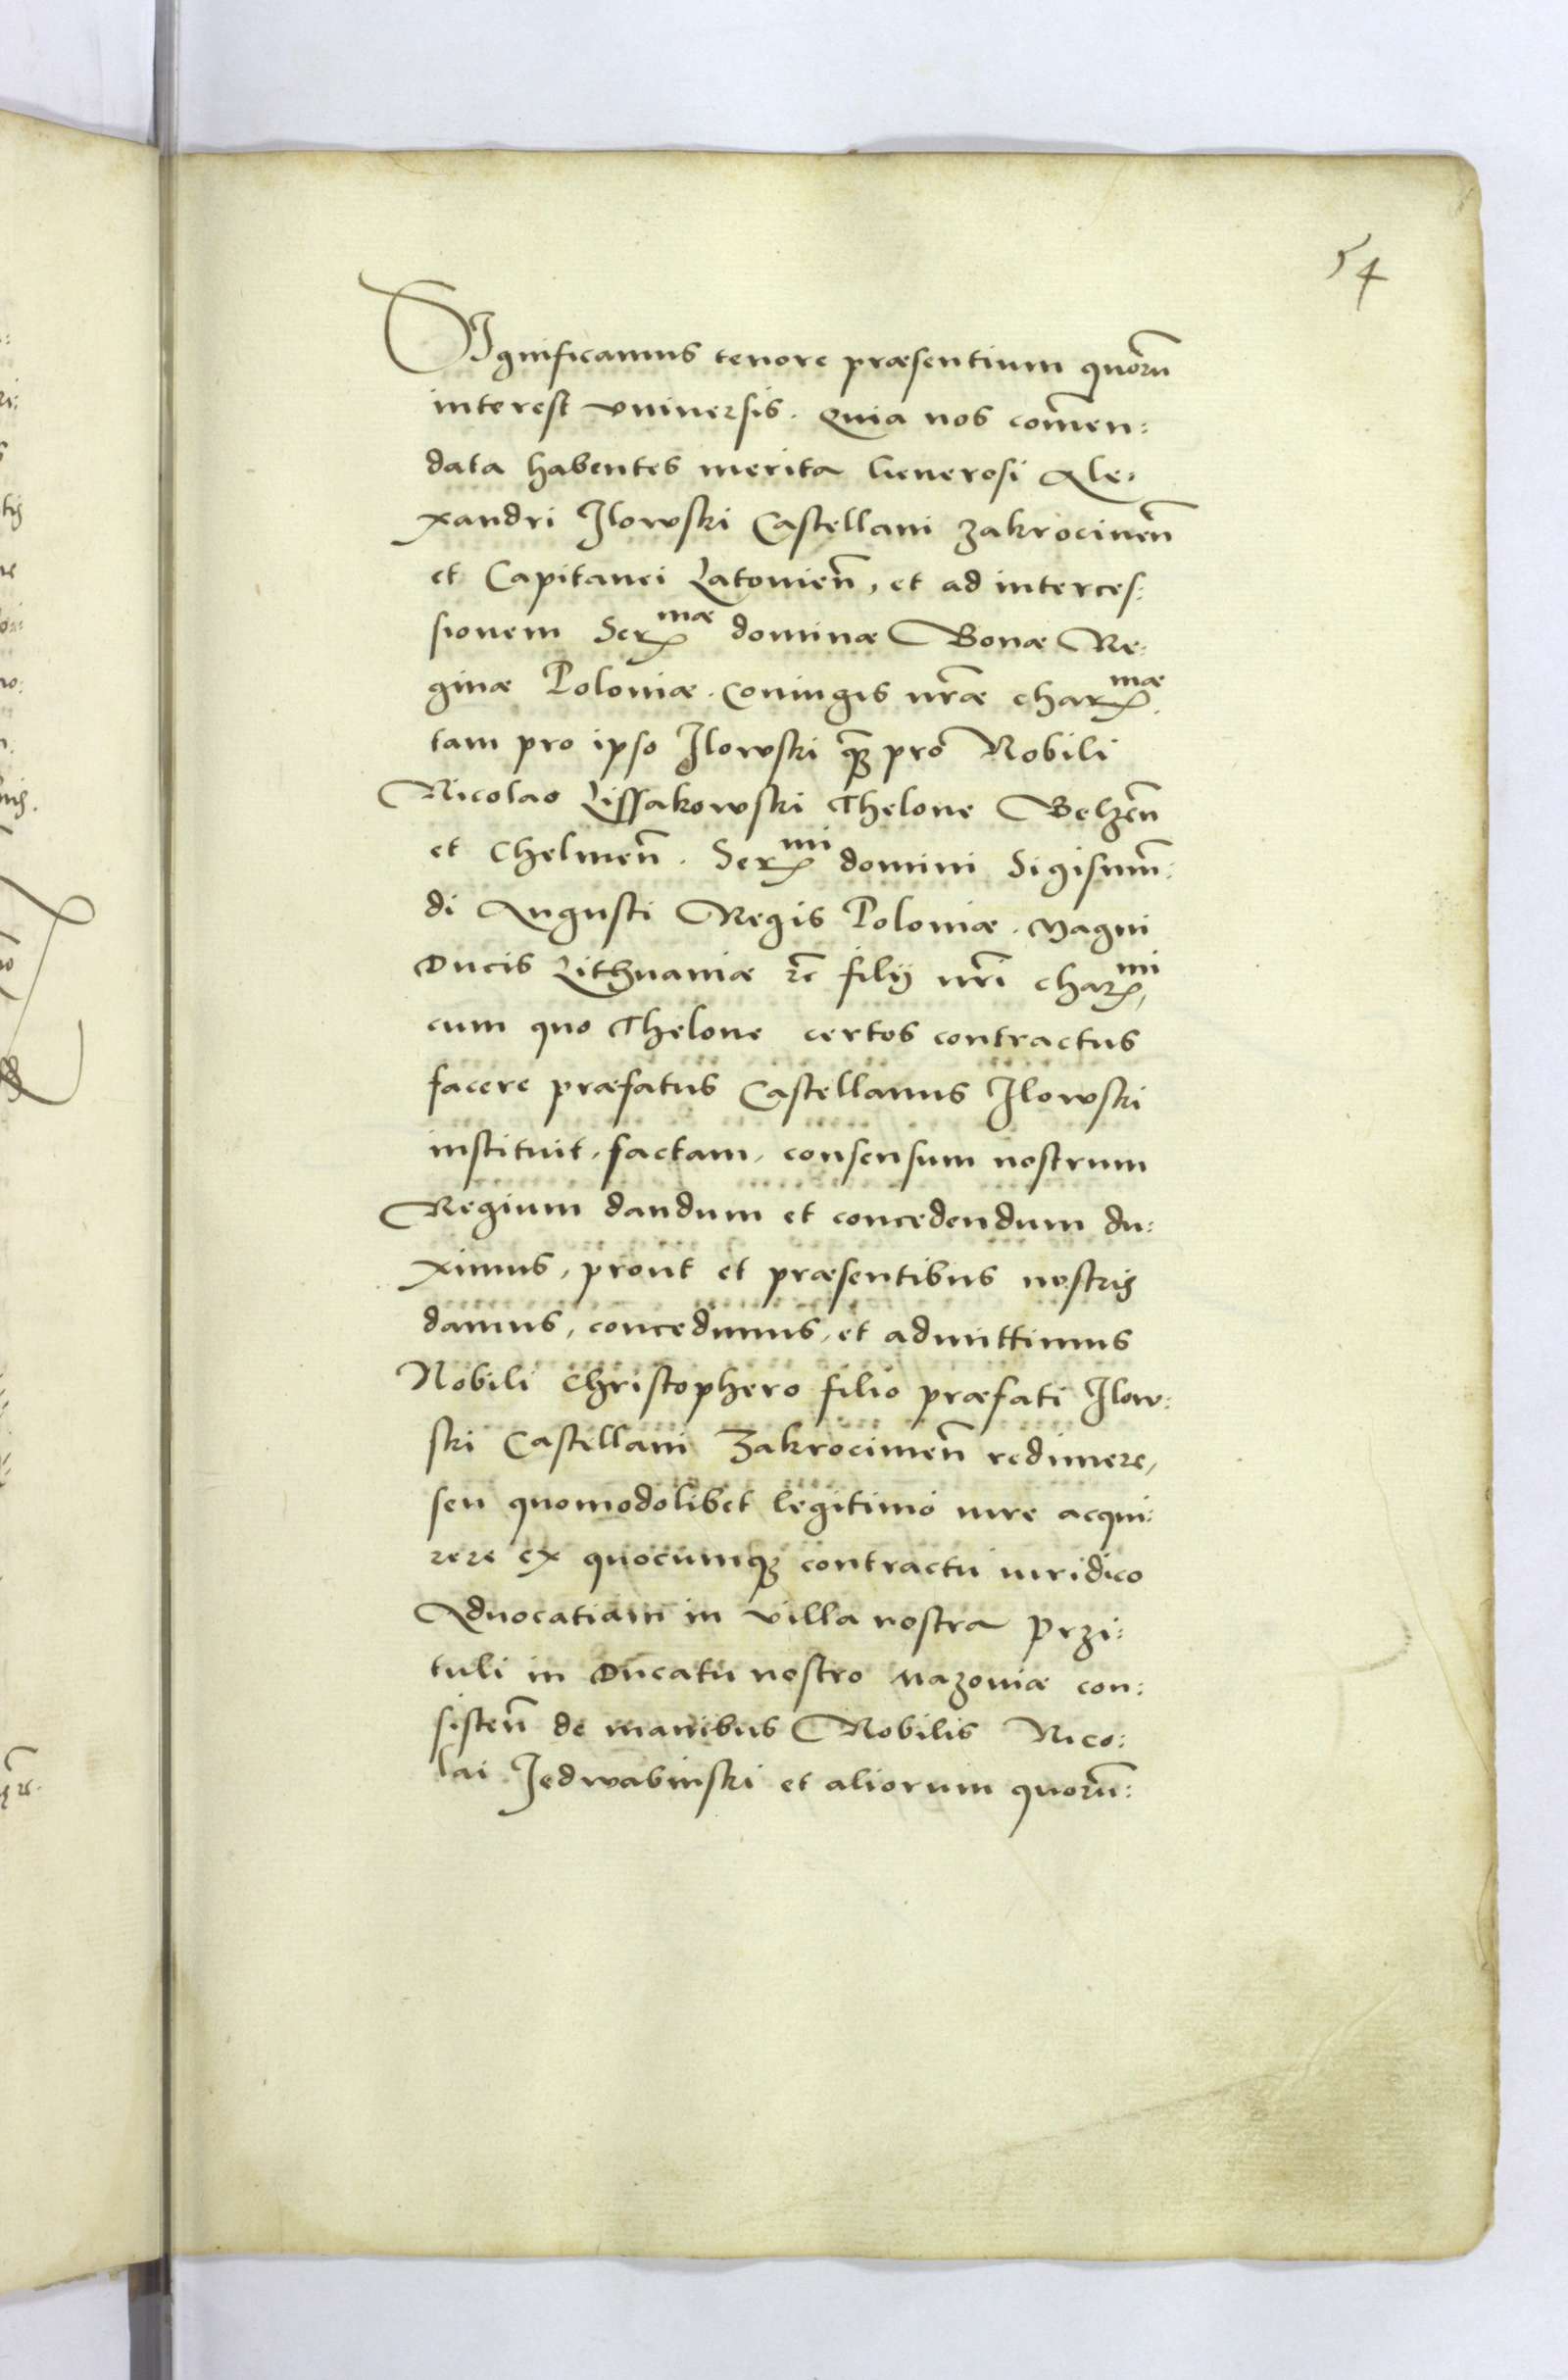 54
Significamus tenore præsentium quorū
interest vniuersis. Quia nos com̄en:
data habentes merita Generosi Ale:
xandri Ilowski Castellani Zakrocimen̄
et Capitanei Latonien̄, et ad interces:
sionem Ser^mæ dominæ Bonæ Re:
ginæ Poloniæ. Coniugis nr̄æ char^mæ.
tam pro ipso Ilowski q̄ȝ pro Nobili
Nicolao Lissakowski Thelone Belzen̄
et Chelmen̄. Ser^mi domini Sigismun̄:
di Augusti Regis Poloniæ. Magni
Ducis Lithuaniæ ꝛc̄ filij nr̄i char^mi,
cum quo Thelone certos contractus
facere præfatus Castellanus Ilowski
instituit, factam, consensum nostrum
Regium dandum et concedendum du:
ximus, prout et præsentibus nostris
damus, concedimus, et admittimus
Nobili Christophero filio præfati Ilow:
ski Castellani Zakrocimen̄ redimere,
seu quomodolibet legitimo iure acqui:
rere ex quocumqȝ contractu iuridico
Aduocatiam in villa nostra Przi:
tuli in Ducatu nostro Mazoniæ con:
sisten̄ de manibus Nobilis Nico:
lai Jedwabinski et aliorum quorū: